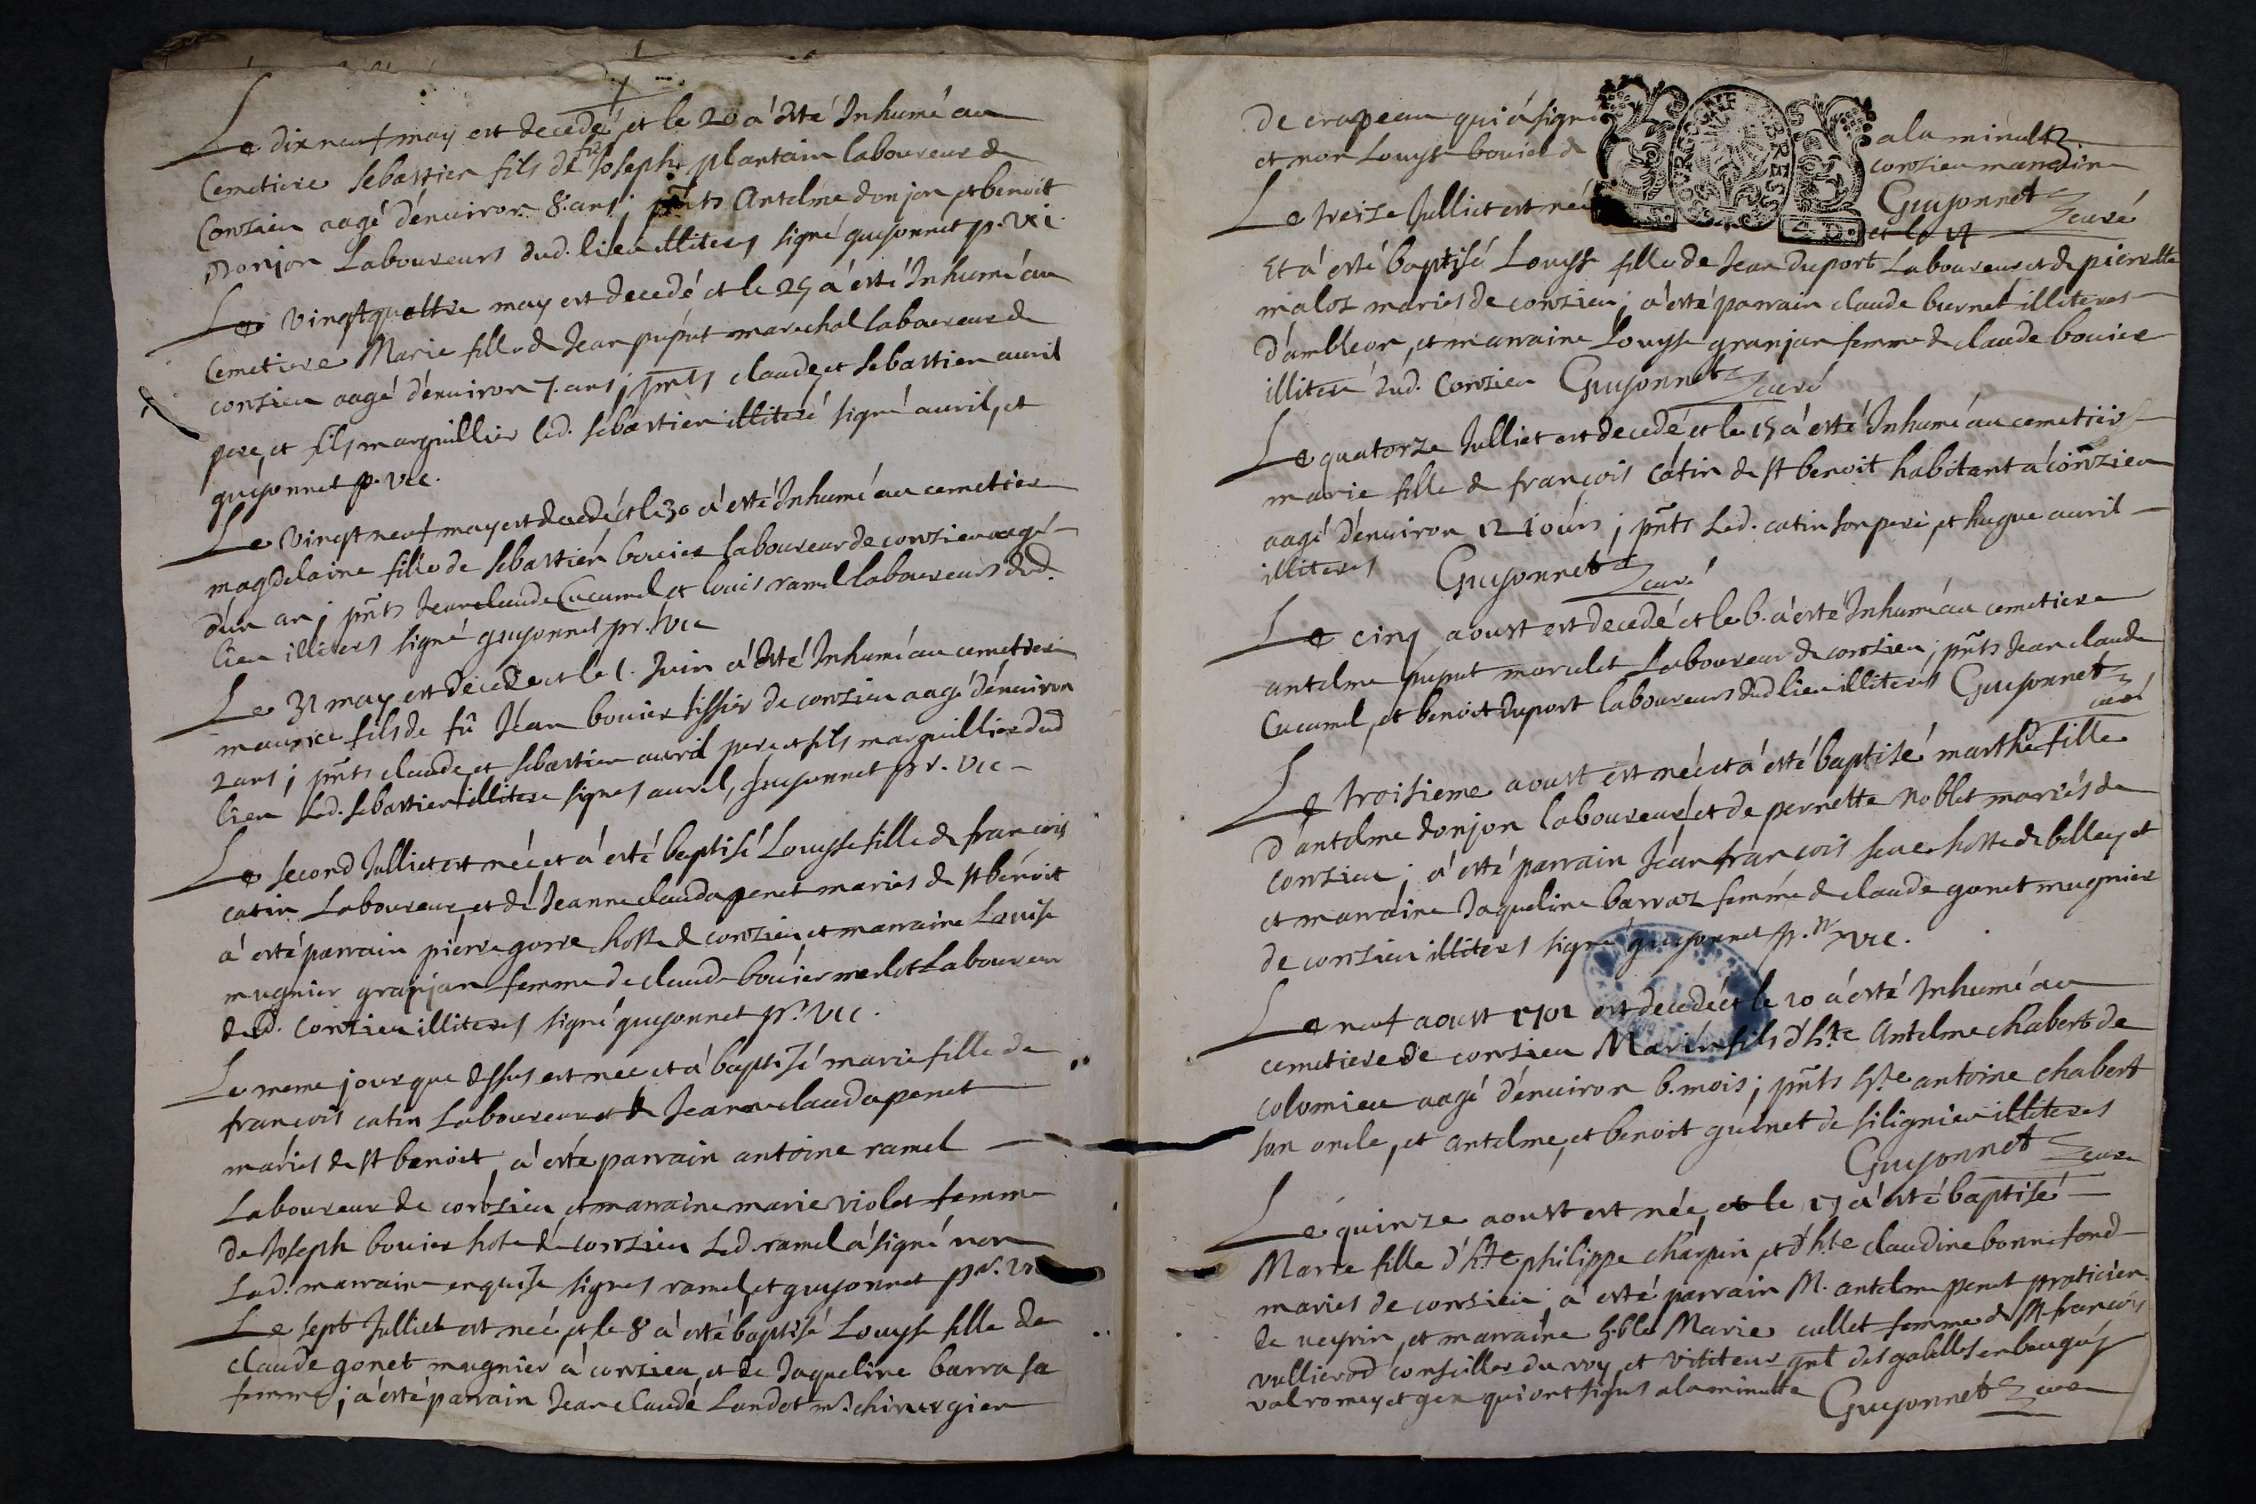 Le dix neuf may est decedé et le 20 à esté Inhumé au
Cemetiere Sebastien fils de fû Joseph plantain laboureur de
Conzieu aagé d'enuiron 8. ans; pnts Antelme donjon et benoit
Donjon Laboureurs dud. lieu illiteres signé guyonnet p. vic
Le vingtquattre may est decedé et le 25 à esté Inhumé au
Cemetiere Marie fille de Jean puput maréchal laboureur de
conzieu aagé d'enuiron 7. ans; pnts claude et Sebastien auril
pere, et fils marguillier led. sebastien illiteré signé auril, et
guyonnet p. vic.
Le vingt neuf may est decedé et le 30 à esté Inhumé au cemetiere
magdelaine fille de Sebastien bouier laboureur de conzieu aagé
d'un an; pnts Jean claude Cucumel et louis ramel laboureurs dud.
lieu illiteres signé guyonnet pr. vic
Le 31 may est decede et le 1. Juin à esté Inhumé au cemetiere
maurice fils de fû Jean bouier tissier de conzieu aagé d'enuiron
2 ans; pnts claude et sebastien auril pere et fils marguillier dud
lieu led. sebastien illitere signes auril, guyonnet pr. vic
Le second Julliet est née et à esté baptisé Louyse fille de françois
catin Laboureur, et de Jeanne clauda penet mariés de st benoit
à esté parrain pierre gorre hoste de conzieu et marraine Louise
mugnier granjan femme de claude bouier merlet Laboureur
dud. conzieu illiteres signé guyonnet pr. vic.
Le meme jour que dessus est née et à baptisé marie fille de
françois catin Laboureur et de Jeanne clauda penet
mariés de st benoit, à esté parrain antoine ramel
Laboureur de conzieu, et marraine marie violet femme
de Joseph bouier hote de conzieu led. ramel à signé non
Lad. marraine enquise signes ramel et guyonnet pr.
Le sept Julliet est née et le 8 à esté baptisé Louyse fille de
claude gonet mugnier à conzieu, et de Jaqueline barra sa
femme; à esté parrain Jean claude Landet m.e chirurgien
de crapeau qui à signé a la minutte
et non Louyse bouier de conzieu marraine
Guyonnet curé
Le treize Julliet est née et le 14
Et à esté baptisé Louyse fille de Jean duport Laboureur et de pierrette
maloz mariés de conzieu; à esté parrain claude burnet illiteres
d'ambleon, et marraine Louyse granjan femme de claude bouier
illitere dud. Conzieu Guyonnet curé
Le quatorze Julliet est decedé et le 15 à esté Inhumé au cemetiere
marie fille de françois Catin de st benoit habitant à conzieu
aagé d'enuiron 12 jours; pnts led. catin son pere, et hugue auril
illiteres Guyonnet curé
Le cinq aoust est decedé et le 6. à esté Inhumé au cemetiere
antelme puput marulet Laboureur de conzieu; pnts Jean claude
Cucumel, et benoit duport laboureurs dud lieu illiteres Guyonnet
curé
Le troisieme aoust est née et à esté baptisé marthe fille
d'antelme donjon laboureur, et de pernette noblet mariés de
conzieu; à esté parrain Jean françois hoste de belley et
et marraine Jaqueline barraz femme de claude gonet mugnier
de conzieu illiteres signé guyonnet p.r vic.
Le neuf aoust 1701 est decedé et le 10 à esté Inhumé au
cemetiere de conzieu Marin fils d'h.te Antelme chabert de
colomieu aagé d'enuiron 6. mois; pnts h.te antoine chabert
son oncle, et antelme, et benoit guinet de silignieu illiteres
Guyonnet curé
Le quinze aoust est née, et le 17 à esté baptisé
Marie fille d'h.te philippe charpin, et d'h.te claudine bonnefond
mariés de conzieu; à esté parrain M. antelme penet praticien
de ueyrin, et marraine h.ble Marie cullet femme de M. françois
vullierod conseiller du roy, et visiteur gnl des gabelles en beugey
valromey et gex qui ont signes a la minutte Guyonnet curé